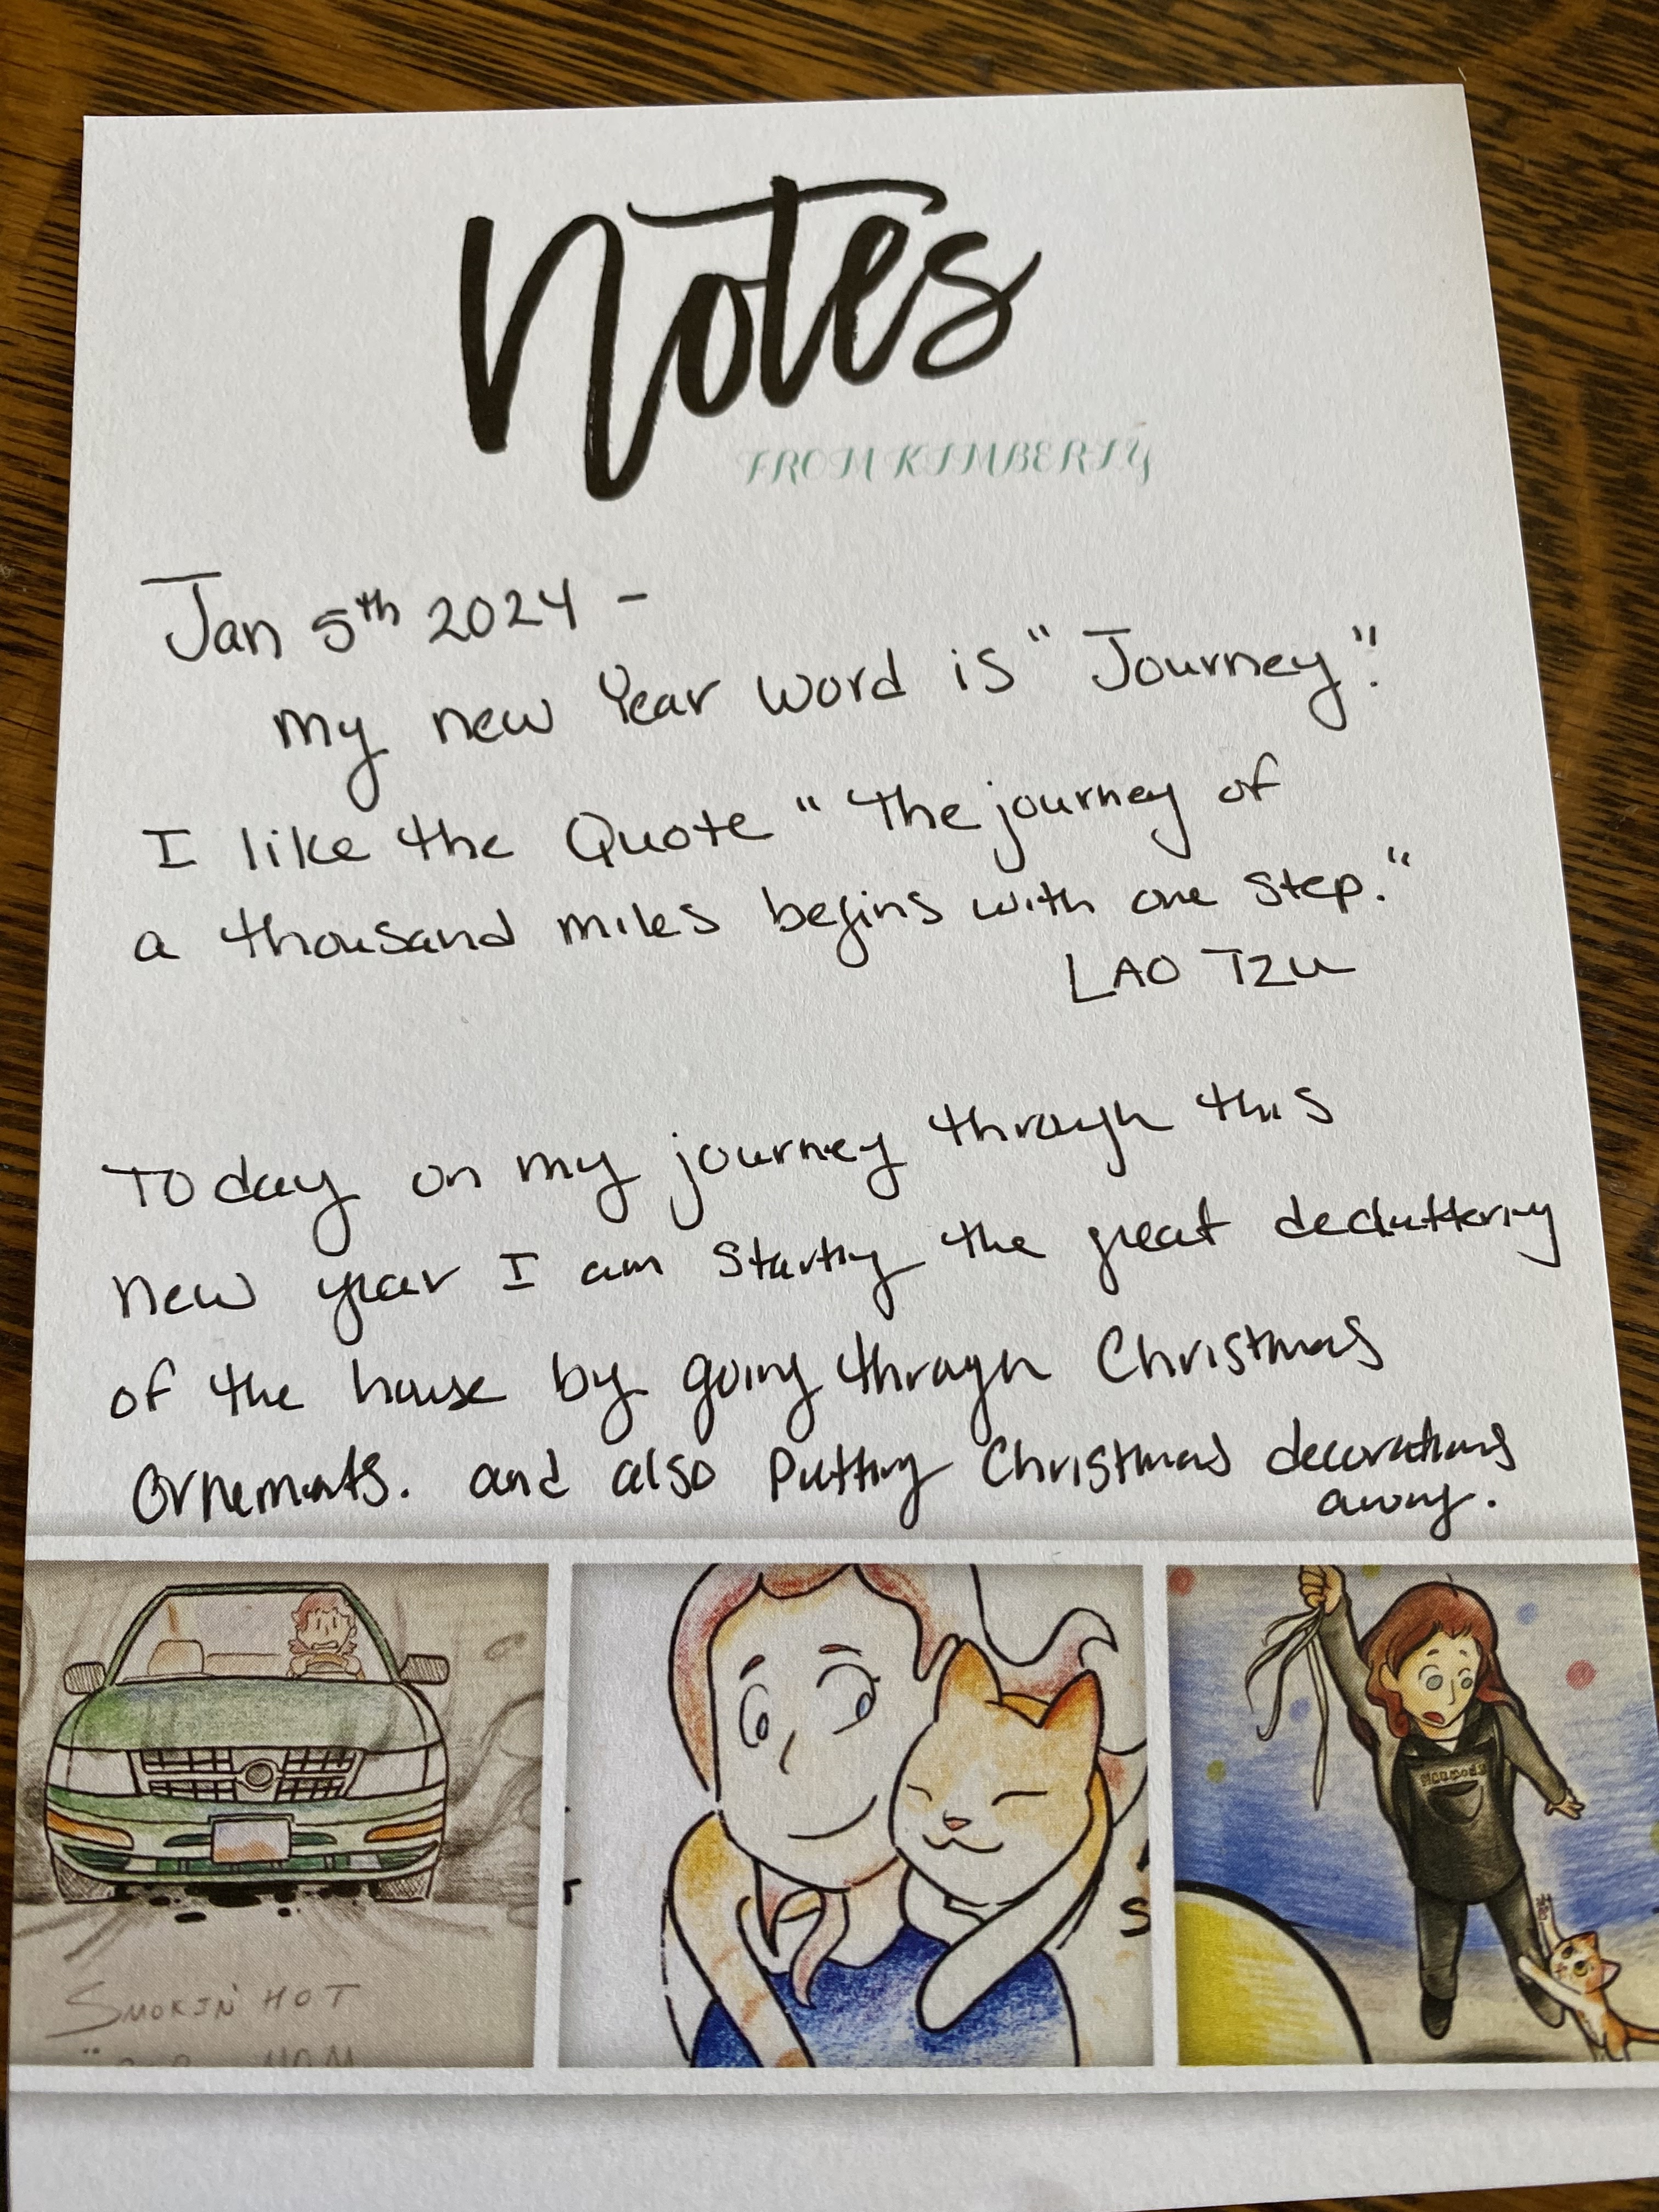 Notes
FROM KIMBERLY
Jan 5th 2024 -
My new Year word is "Journey".
I like the Quote "The journey of
a thousand miles begins with one step."
LAO TZU
Today on my journey through this
New year I am starting the great decluttering
of the house by going through Christmas
Ornements. and also Putting Christmas decorations
away.
SMOKIN' HOT
MOM
S